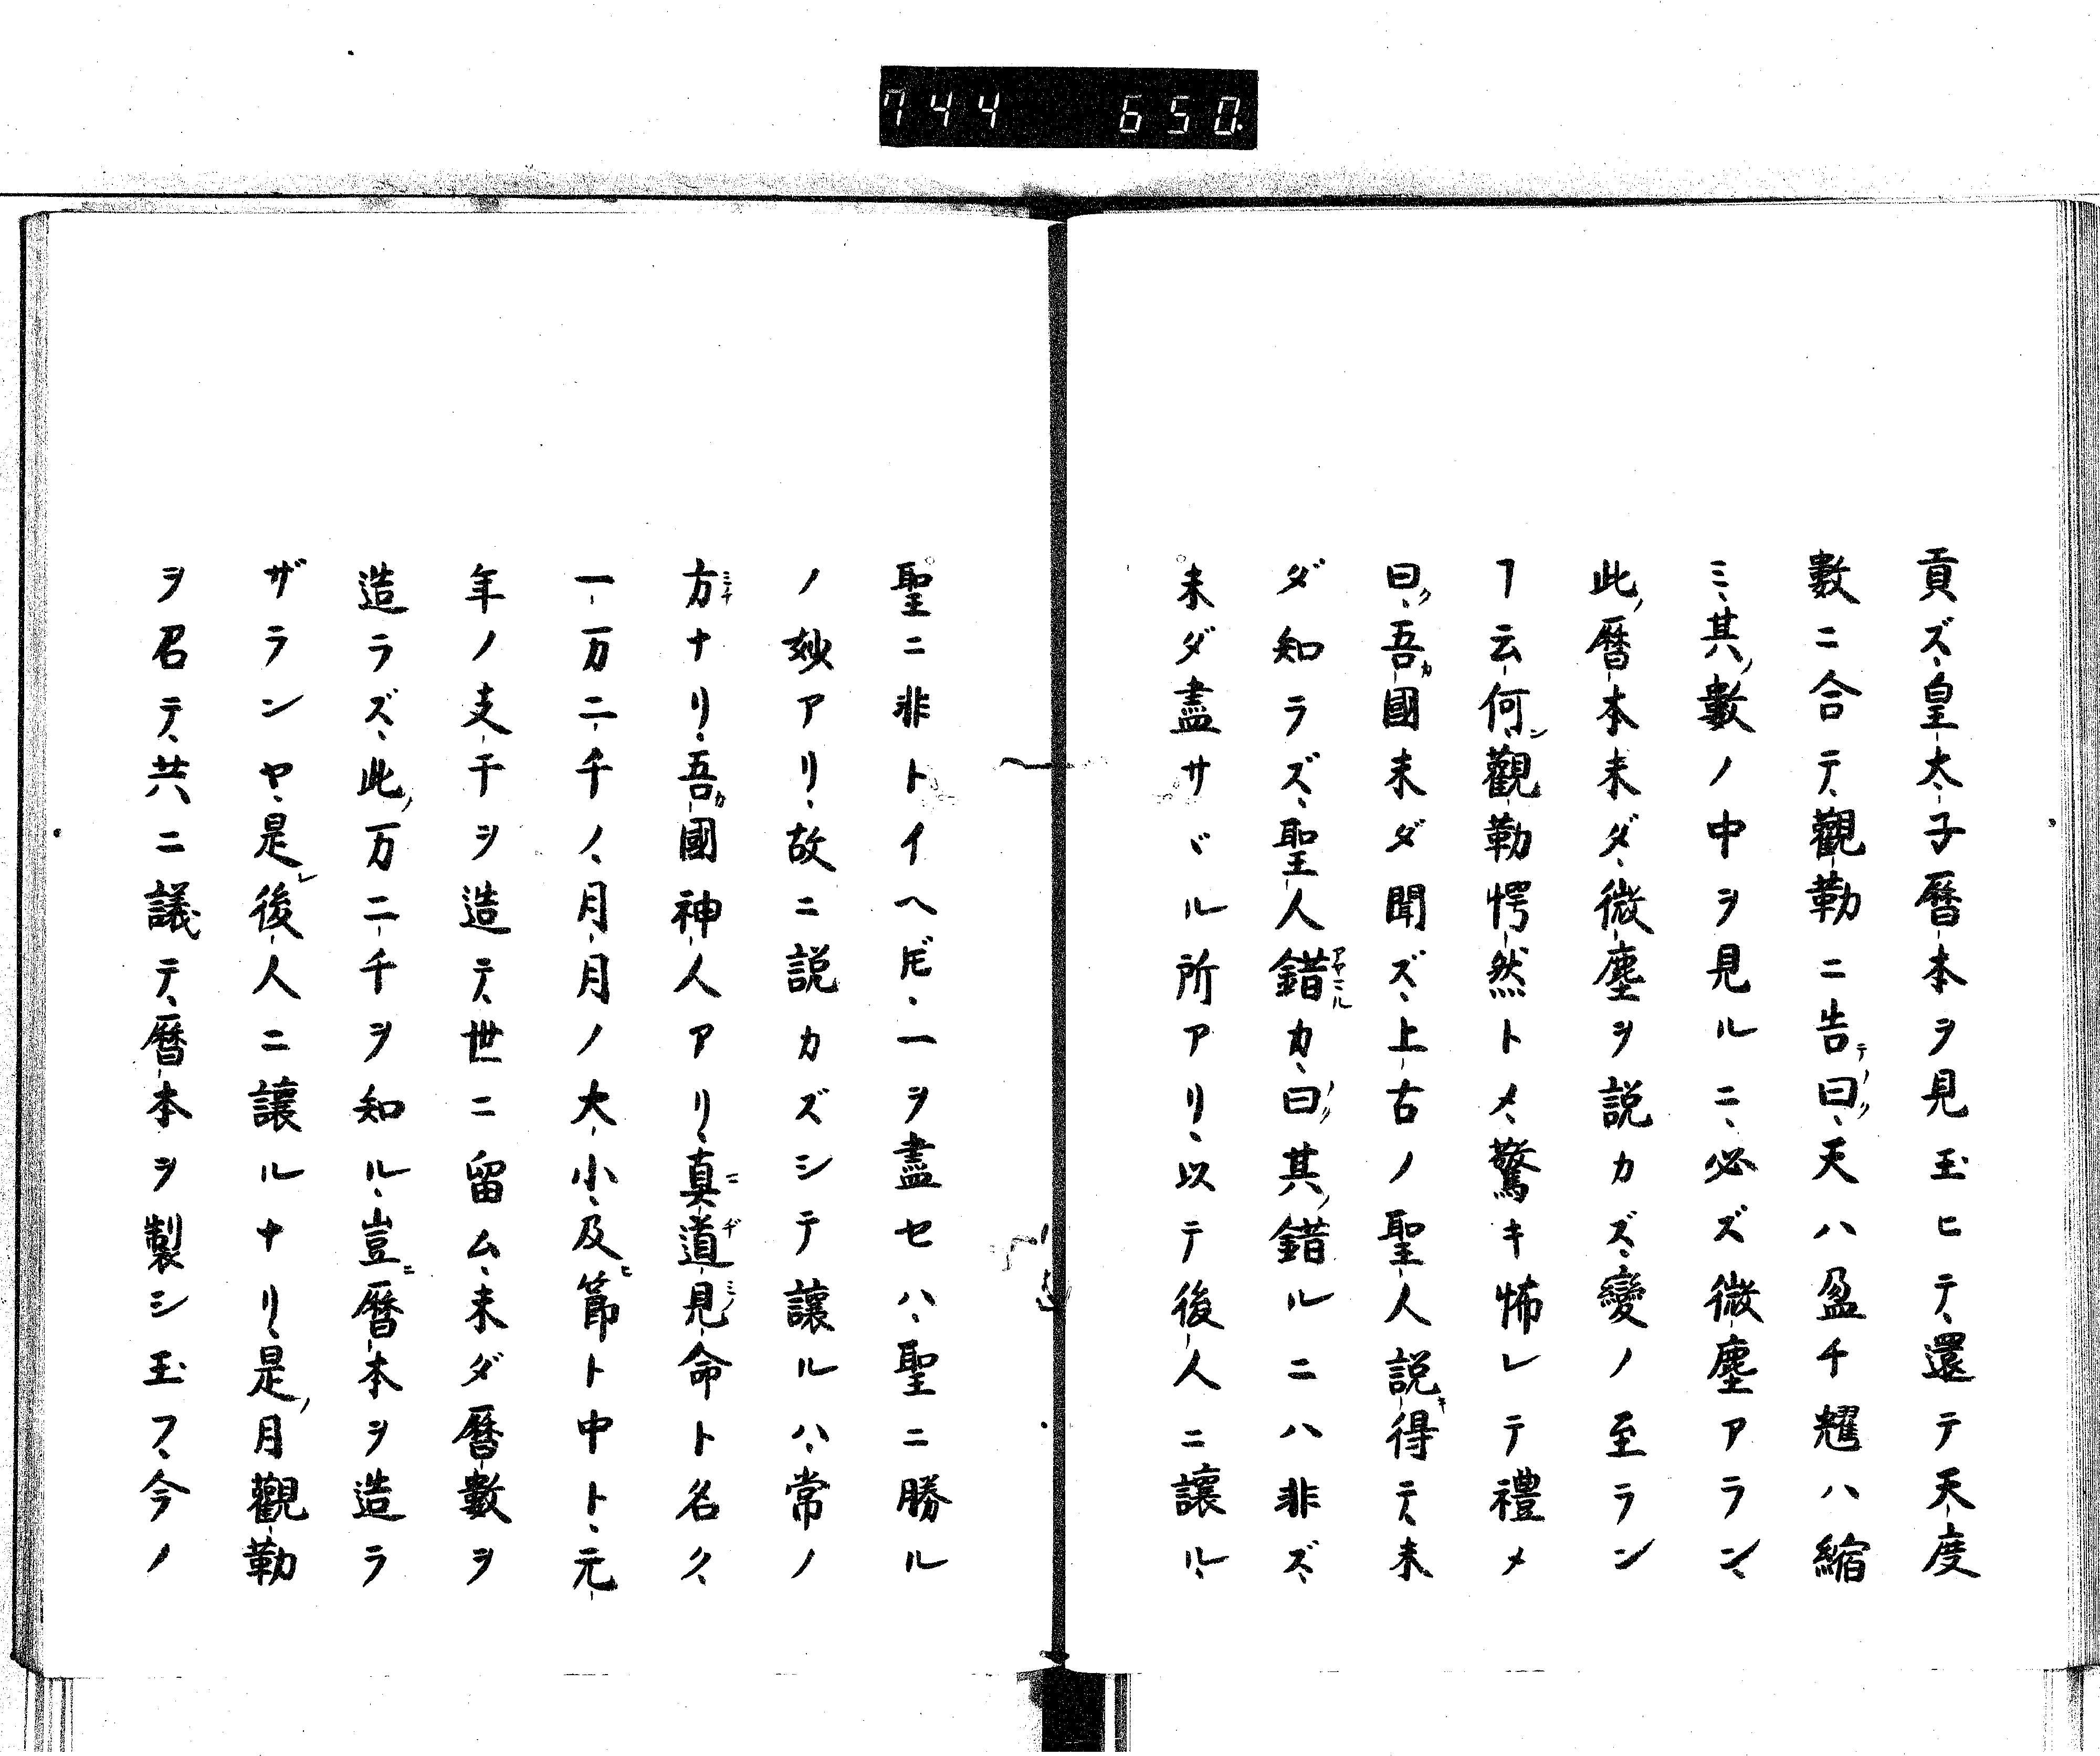 744 650.
貢ズ、皇太子暦本ヲ見玉ヒテ、還テ天度
數ニ合テ、觀勒ニ告曰、天ハ盈チ耀ハ縮
ミ、其數ノ中ヲ見ルニ、必ズ微塵アラン、
此暦本未ダ、微塵ヲ説カズ、變ノ至ラン
ヿ云何、觀勒愕然トメ、驚キ怖レテ禮メ
曰、吾國未ダ聞ズ、上古ノ聖人説得テ、未
ダ知ラズ、聖人錯カ、曰其錯ルニハ非ズ、
未ダ盡サヾル所アリ、以テ後人ニ讓ル、
聖ニ非トイヘ𪜈、一ヲ盡セハ、聖ニ勝ル
ノ妙アリ、故ニ説カズシテ讓ルハ、常ノ
方ナリ、吾國神人アリ、真道見命ト名ク、
一万二千ノ、月月ノ大小、及節ト中ト、元
年ノ支干ヲ造テ、世ニ留ム、未ダ暦數ヲ
造ラズ、此万二千ヲ知ル、豈暦本ヲ造ラ
ザランヤ、是後人ニ讓ルナリ、是月觀勒
ヲ召テ、共ニ議テ、暦本ヲ製シ玉フ、今ノ